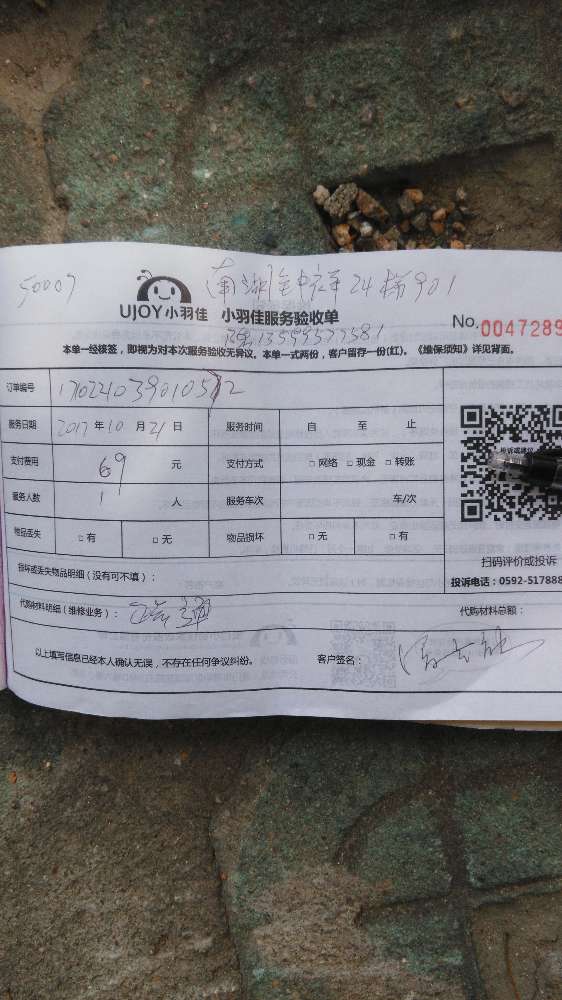 50007 南湖
24梯901
UJOY小羽佳 小羽佳服务验收单
No.0047289
本单一经核签，即视为对本次服务验收无异议。本单一式两份，客户留存一份(红)。《维保须知》详见背面。
订单编号
服务日期 2017 年 10 月 21 日 服务时间 自 至 止
支付费用 69 元 支付方式 □网络 □现金 □转账
服务人数 1 人 服务车次 车/次
物品丢失 □有 □无 物品损坏 □无 □有
扫码评价或投诉
损坏或丢失物品明细（没有可不填）：
投诉电话：0592-517888
代购材料明细（维修业务）： 代购材料总额：
以上填写信息已经本人确认无误，不存在任何争议纠纷。 客户签名：